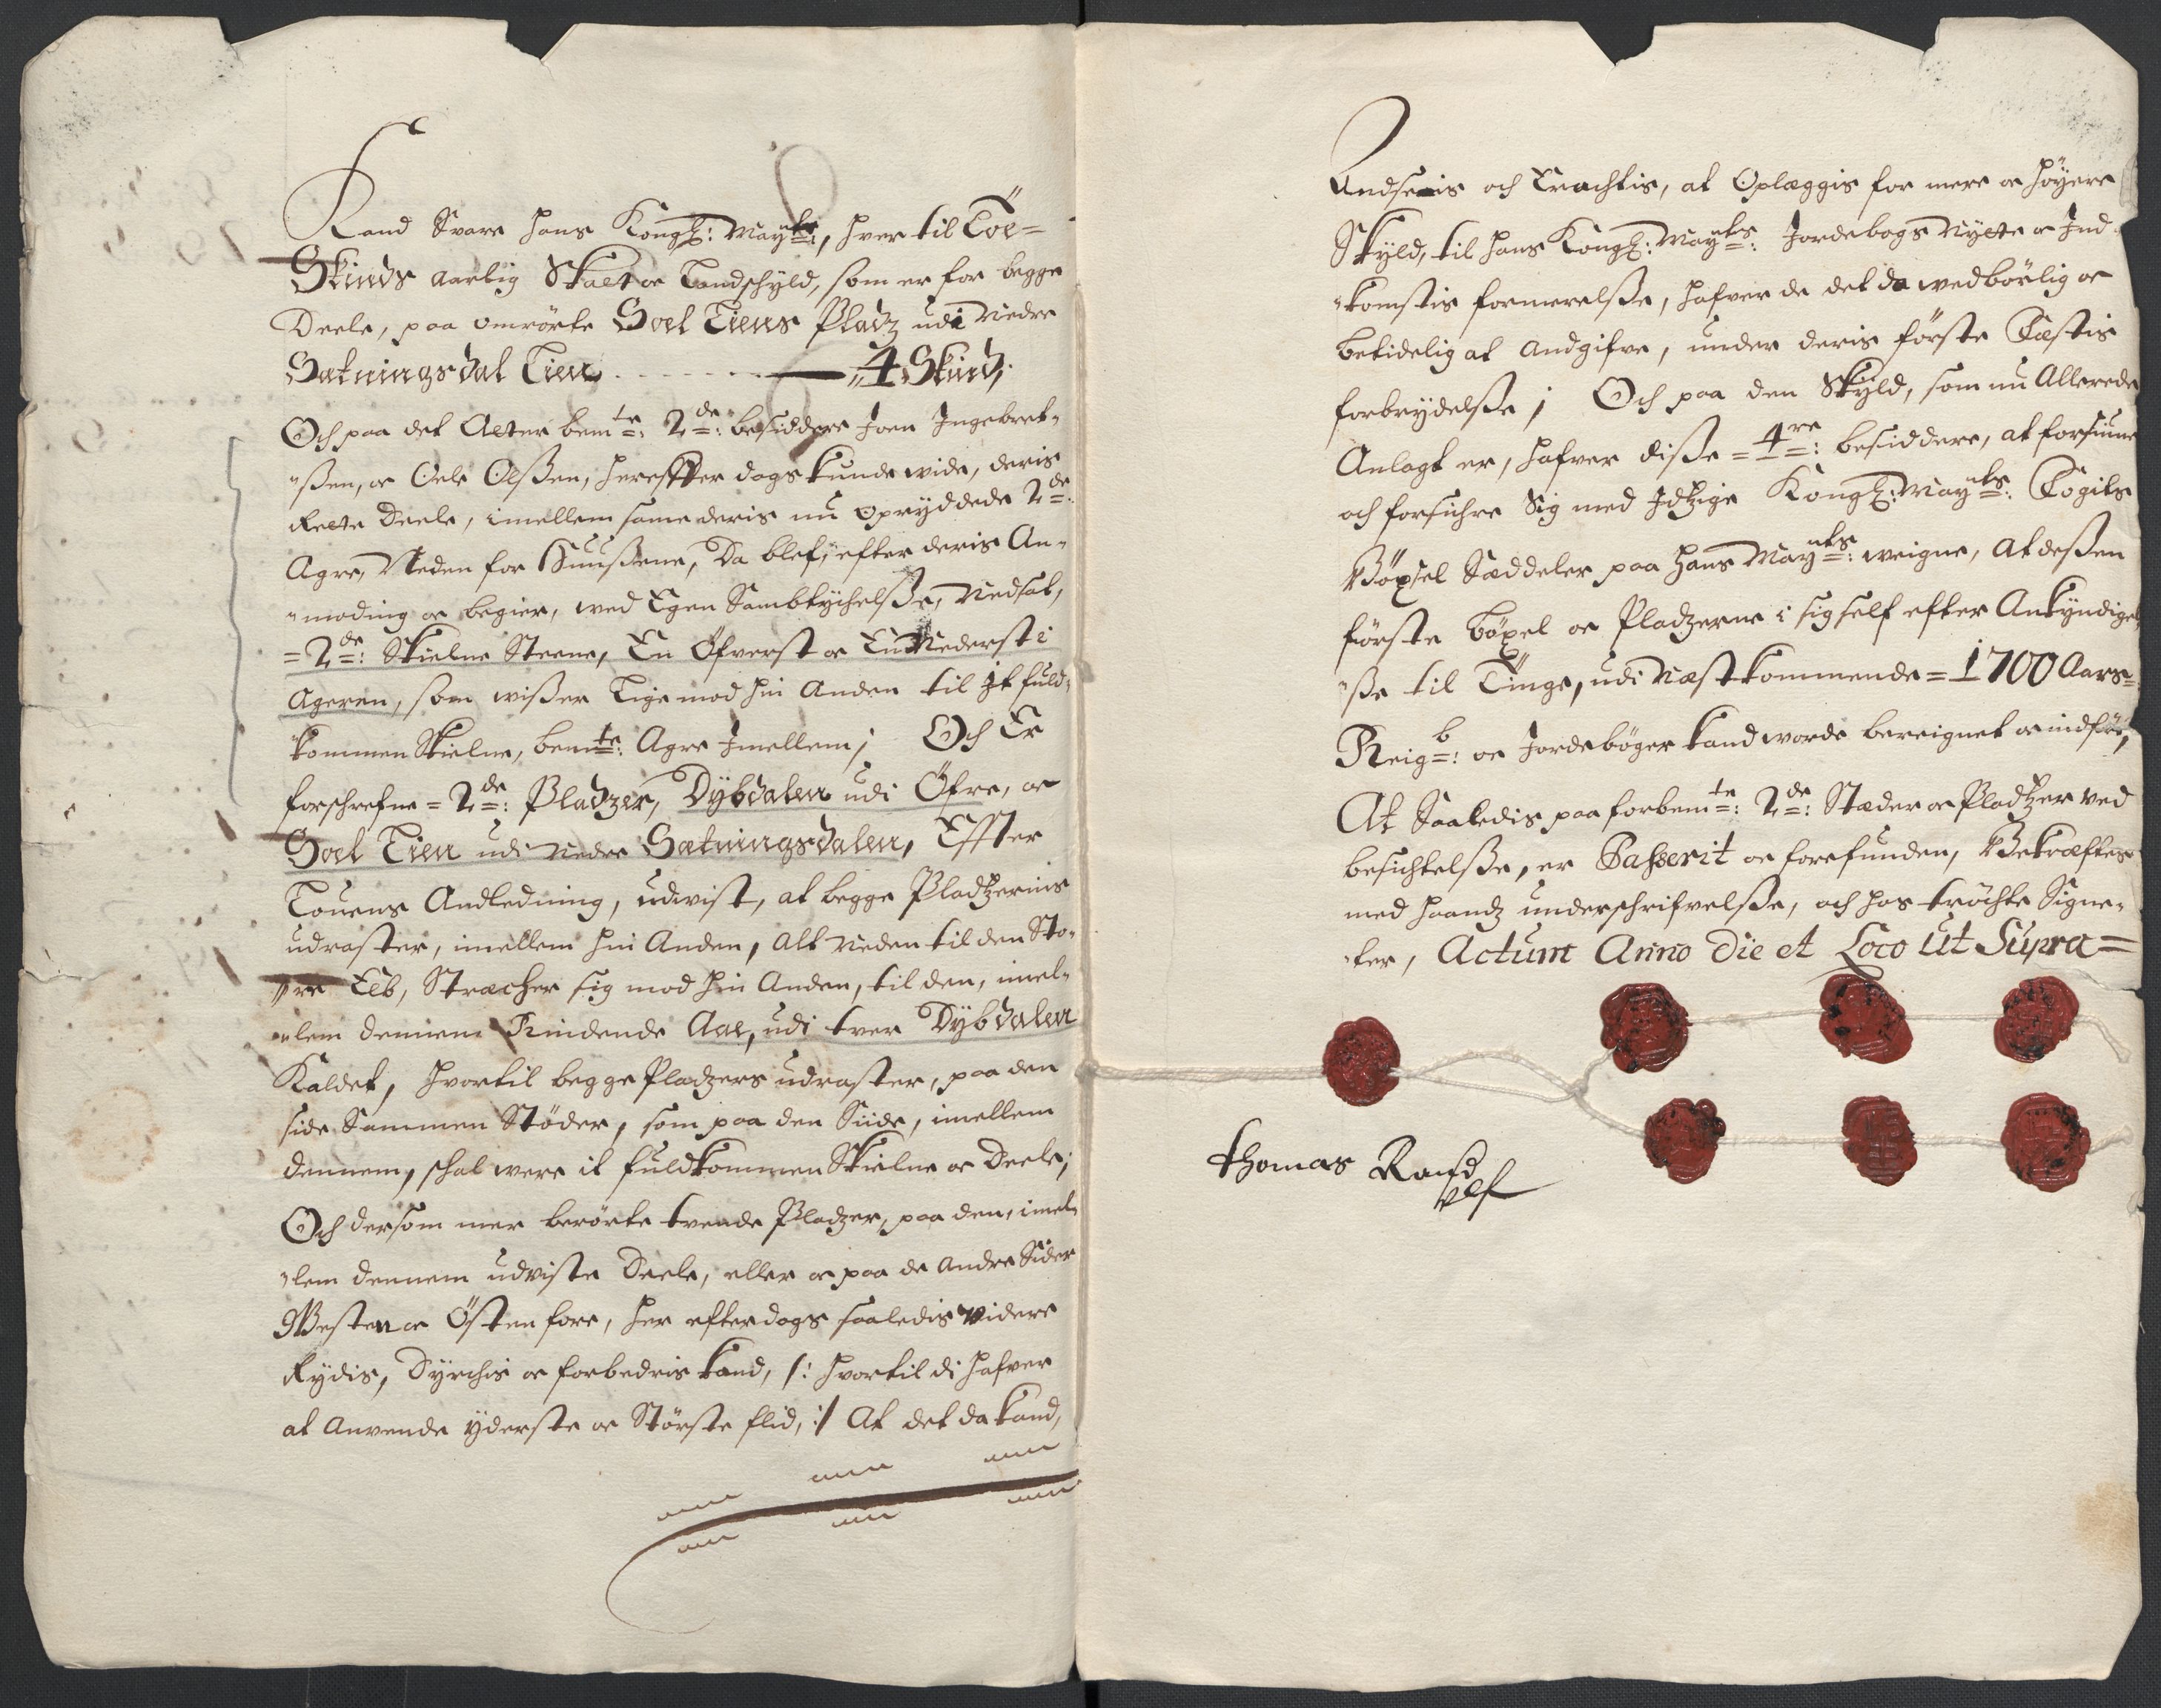 Kand Svare hans Kongl: Mayts:, hver til Toe=
Skinds aarlig Skat oc Landschyld, som er for begge
Deele, paa omrörte Soel Liens Pladz udi Nedre
Sætningsdal Lien - - - - - - - „4 Skind,
Och paa det Atter bemte: 2de: besiddere Joen Ingebret-
"ßen, oc Oele Olßen, hereffter dags kunde vide, deris
Rette Deele, imellem same deris nu opryddede 2de:
Agre, Neden for Huußene, Da blef, efter deris An-
"moding oc begier, wed Egen Sambtychelße, Nedsat,
=2de: Skielne Steene, En Öfverst oc En Nederst i
Ageren, som wißer Lige mod hin Anden til Jt fuld-
"kommen Skielne, bemte: Agre Jmellem; Och Er
forschrefne =2de: Pladzer, Dÿbdalen udi Öfre, oc
Soel Lien udi Nedre Sætningsdalen, Effter
Louens Andledning, udvist, at begge Pladzernis
udraster, imellem hin Anden, Alt Neden til den Sto-
"re Elb, Stræcher sig mod hin Anden, til den, imel-
"lem dennem Rindende Aae, udi tver Dÿbdalen
Kaldet, hvortil begge Pladzers udraster, paa den
side Sammen Stöder, som paa den Siide, imellem
dennem, schal were it fuldkommen Skielne oc Deele;
Och dersom mer berörte tvende Pladzer, paa den, imel-
"lem dennem udviste Deele, eller oc paa de Andre Sider
Westen oc Östen fore, her efter dags saaledis videre
Rÿdis, Dÿrchis oc forbedris kand, /: hvortil di hafver
at Anvende ÿderste oc Störste flid, :/ At det da kand,
Andseeis och Tracktis, at Oplæggis for mere oc höÿere
Skÿld, til hans Kongl: Mayts: Jordebogs Nytte oc Ind-
"komstis formerelße, hafver de det da wedbörlig oc
betidelig at Andgifve, under deris förste Fæstis
forbrÿdelße; Och paa den Skÿld, som nu Allerede
Anlagt er, hafver diße =4re: besiddere, at forfinne
och forsichre Sig med Jdtzige Kongl: Mayts: Fogits
Böxsel Sæddeler paa hans Mayts: weigne, At deßen
förste böxel oc Pladzerne i sig self efter Ankÿndigel-
"ße til Tinge, udi Næstkommende =1700 Aars=
Reigb: oc Jordebøger kand worde bereignet oc indfört,
At Saaledis paa forbemte: 2de: Stæder oc Pladtzer ved
besichtelße, er Passerit oc forefunden, Bekræftes
med haandz underschrifvelße, och hos tröchte Signe-
"ter, Actum Anno Die et Loco Ut Supra=
Thomas Rafd